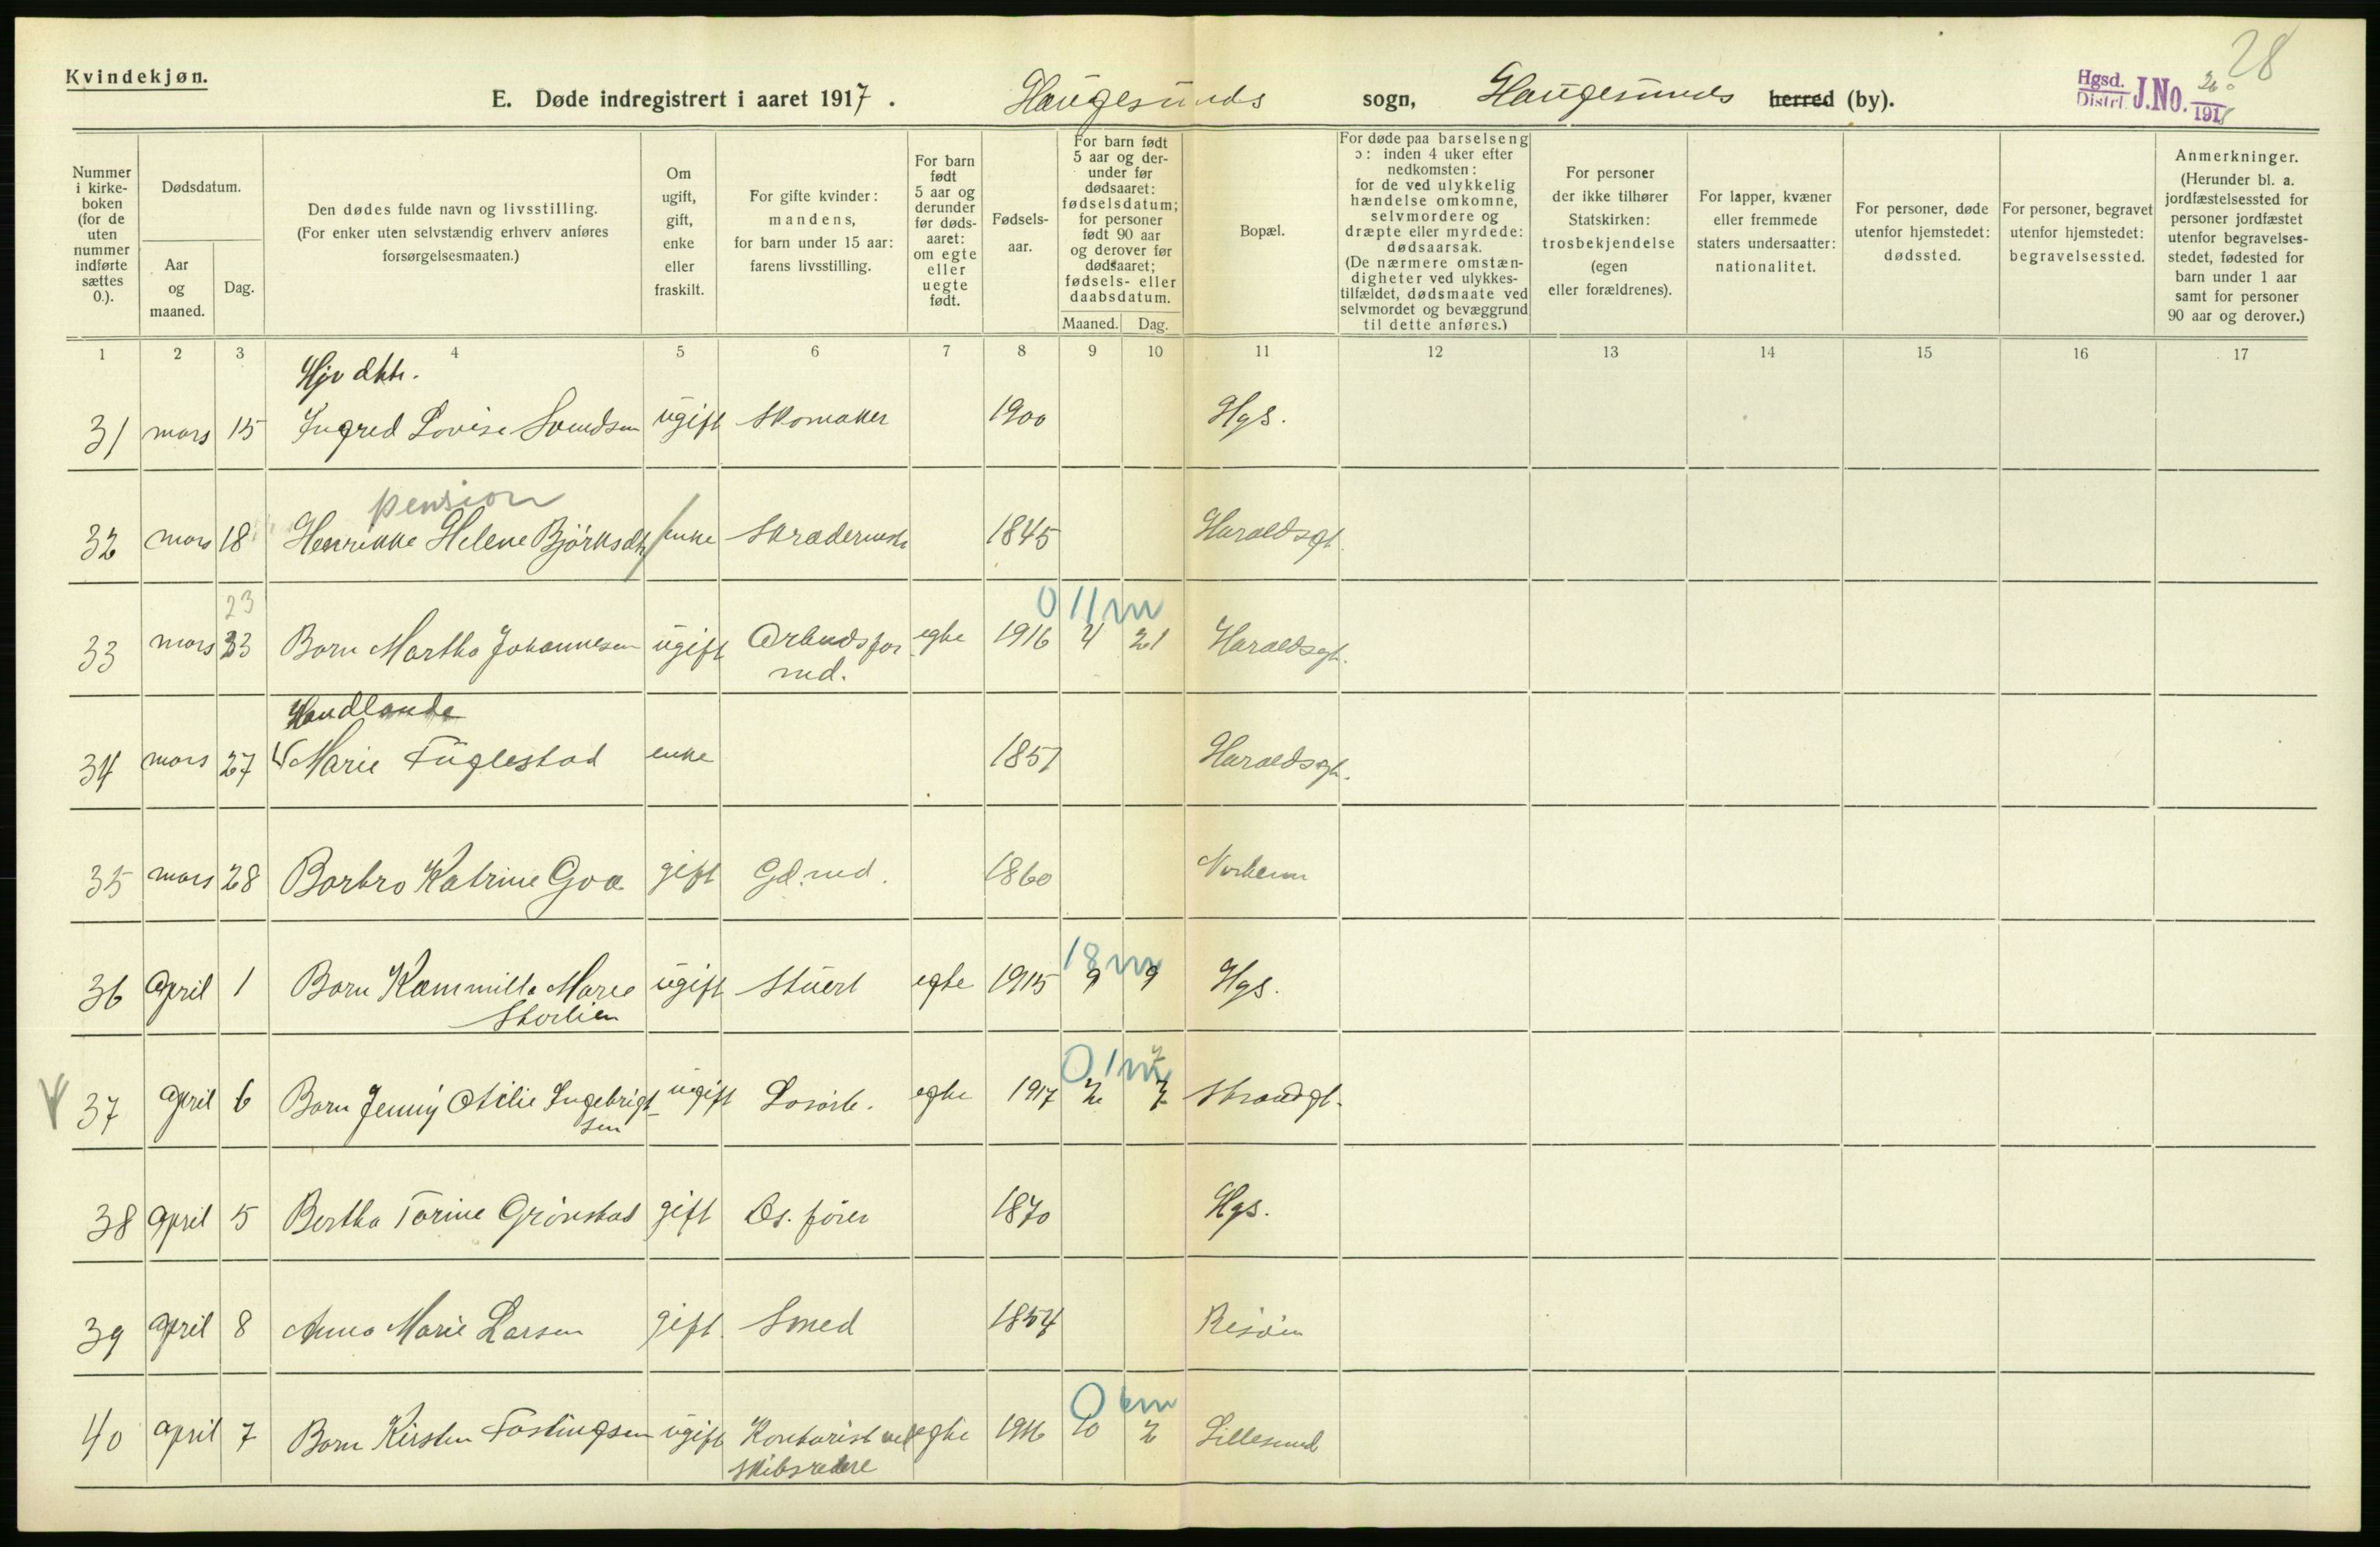 Kvindekjøn.
28
E. Døde indregistrert i aaret 1917. Haugesunds sogn, Haugesunds herred (by).
Hgsd. Distrl. J.No. 1918
Nummer i kirkeboken (for de uten nummer indførte sættes 0.).
Dødsdatum.
Aar og maaned.
Dag.
Den dødes fulde navn og livsstilling. (For enker uten selvstændig erhverv anføres forsørgelsesmaaten.)
Om ugift, gift, enke eller fraskilt.
For gifte kvinder: mandens, for barn under 15 aar: farens livsstilling.
For barn født 5 aar og derunder før dødsaaret: om egte eller uegte født.
Fødselsaar.
For barn født 5 aar og derunder før dødsaaret: fødselsdatum; for personer født 90 aar og derover før dødsaaret; fødsels- eller daabsdatum.
Maaned. Dag.
Bopæl.
For døde paa barselseng ɔ: inden 4 uker efter nedkomsten: for de ved ulykkelig hændelse omkomne, selvmordere og dræpte eller myrdede: dødsaarsak. (De nærmere omstændigheter ved ulykkestilfældet, dødsmaate ved selvmordet og bevæggrund til dette anføres.)
For personer der ikke tilhører Statskirken: trosbekjendelse (egen eller forældrenes).
For lapper, kvæner eller fremmede staters undersaatter: nationalitet.
For personer, døde utenfor hjemstedet: dødssted.
For personer, begravet utenfor hjemstedet: begravelsessted.
Anmerkninger. (Herunder bl. a. jordfæstelsessted for personer jordfæstet utenfor begravelsesstedet, fødested for barn under 1 aar samt for personer 90 aar og derover.)
1 2 3 4 5 6 7 8 9 10 11 12 13 14 15 16 17
Hjv dktr.
31 mars 15 Ingred Lovise Svendsen ugift Skomaker 1900 Hgs.
pension
32 mars 18 Henrikke Helene enke 1845 Haraldsgt.
23 0 11 m
33 mars 23 Barn Martha Johannesen ugift Arbeidsfor egte 1916 4 21 Haraldsgt.
md.
Handlande
34 mars 27 Marie Fuglestad enke 1851 Haraldsgt.
35 mars 28 Barbro Katrine Goa gift Gd.md. 1860 Norheim
18 m
36 April 1 Barn Kammilla Marie ugift Stuert egte 1915 9 9 Hgs.
Storlien
0 1 m
37 April 6 Barn Jenny Otilie Ingebrigt- ugift egte 1917 2 7 Strandgt.
sen
38 April 5 Bertha Torine Grönstad gift Ds. förer 1870 Hgs.
39 April 8 Anna Marie Larsen gift Smed 1854 Risöen
0 6 m
40 April 7 Barn Kirsten Fostingsen ugift Kontorist ved egte 1916 10 2 Lillesund
Skibsredere